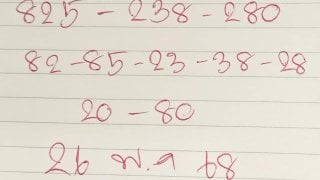 825 - 238 - 280
82 - 85 - 23 - 38 - 28
20 - 80
26 พ.ค 68